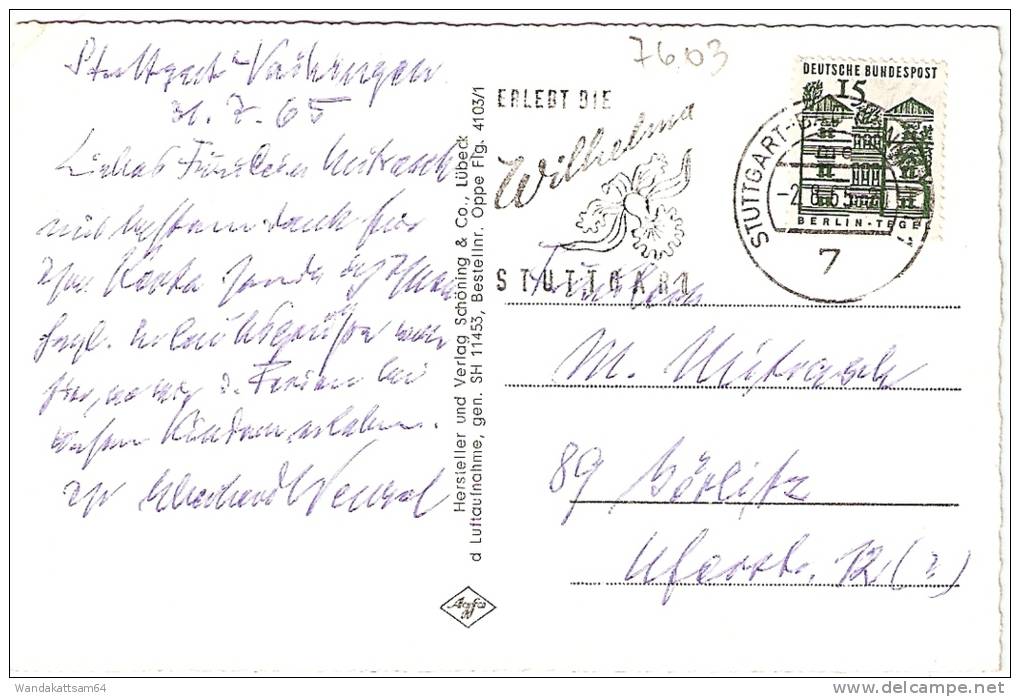 Stuttgart-Vaihingen
31.7.65
Liebes Fräulein Mitrasch
mit bestem Dank für
Ihre Karte sende ich Ihnen
herzl. Urlaubsgrüße von
hier, wo wir d. Ferien bei
unsern Kindern erleben.
Ihr
Hersteller und Verlag Schöning & Co., Lübeck
d Luftaufnahme, gen. SH 11453, Bestellnr. Oppe Flg. 4103/1
Agfa
7603
ERLEBT DIE
Wilhelma
STUTTGART
DEUTSCHE BUNDESPOST
15
BERLIN-TEGEL
STUTTGART-BAD
-2.8.65
7
Fräulein
M. Mitrasch
89 Görlitz
Uferstr. 12 (?)
Wandakattsam64
delcampe.net